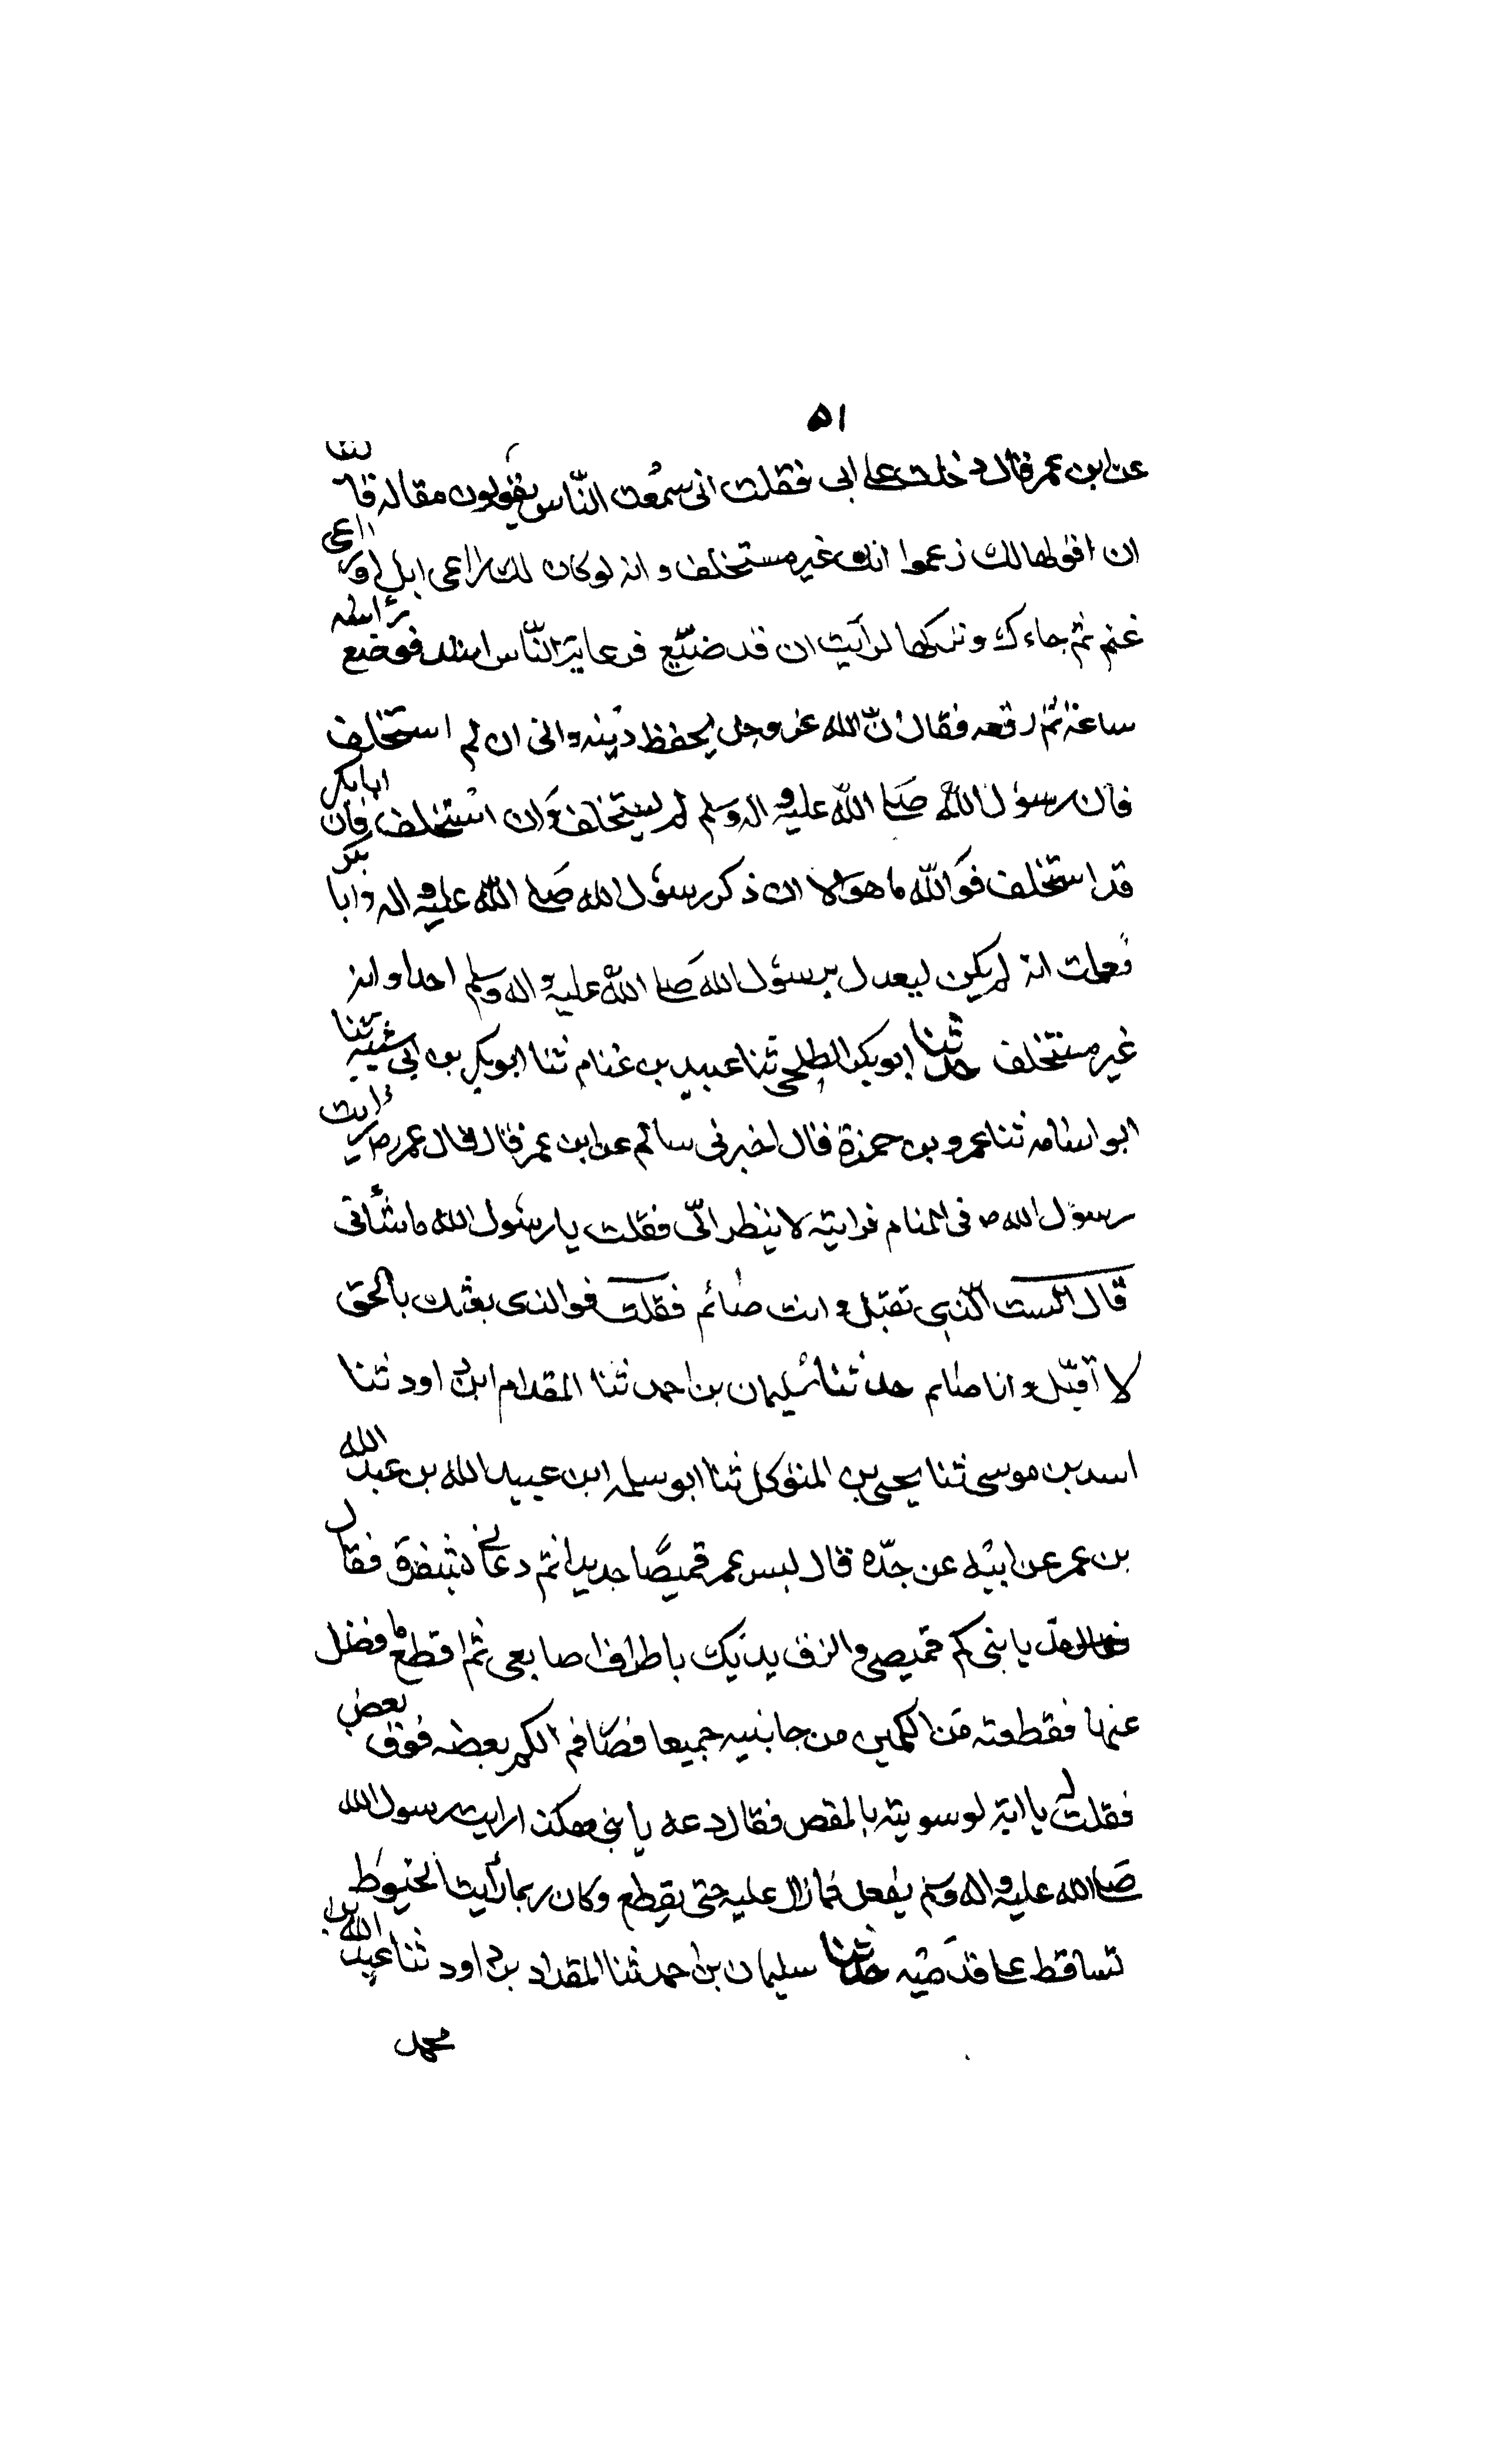 ٥١
عن ابن عمر قال دخلت على ابى فقلت انى سمعت الناس يقولون مقالة فآليت
ان اقولها لك زعموا انك غير مستخلف و انه لو كان لك راعى ابل او راعى
غنم ثم جاءك و تركها لرأيت ان قد ضيّع فرعاية النّاس اشد فوضع رأسه
ساعة ثم رفعه فقال انّ الله عز وجل يحفظ دينه وانى ان لم استخلف
فان رسول الله صلى الله عليه و اله وسلم لم يستخلف وان استخلف فان ابا بكر
قد استخلف فوالله ما هو الا ان ذكر رسول الله صلى الله عليه و اله وابا بكر
فعلمت انه لم يكن ليعدل برسول الله صلى الله عليه و اله وسلم احدا وانه
غير مستخلف حدثنا ابوبكر الطلحى ثنا عبيد بن غنام ثنا ابوبكر بن ابى شيبه ثنا
ابو اسامه ثنا عمرو بن حمزة قال اخبرنى سالم عن ابن عمر قال قال عمر رض رأيت
رسول الله ص فى المنام فرايته لا ينظر الىّ فقلت يا رسول الله ما شأنى
قال الست الذى تقبّل و انت صائم فقلت فوالذى بعثك بالحق
لا اقبّل و انا صائم حدثنا سليمان بن احمد ثنا المقدام ابن داود ثنا
اسد بن موسى ثنا يحيى بن المتوكل ثنا ابو سلمه ابن عبيد الله بن عبد الله
بن عمر عن ابيه عن جدّه قال لبس عمر قميصًا جديدا ثم دعانى بشفرة فقال
مدّ يا بنى كم قميصى والزق يديك باطراف اصابعى ثم اقطع ما فضل
عنها فقطعته من الكمين من جانبيه جميعا فصار فم الكم بعضه فوق بعض
فقلت له يا ابة لو سويته بالمقص فقال دعه يا بنى هكذا رايت رسول الله
صلى الله عليه و اله وسلم يفعل فما زال عليه حتى يقطع وكان ربما رأيت الخيوط
تساقط على قدميه حدثنا سليمان بن احمد ثنا المقداد بن داود ثنا عبد الله بن
محمد